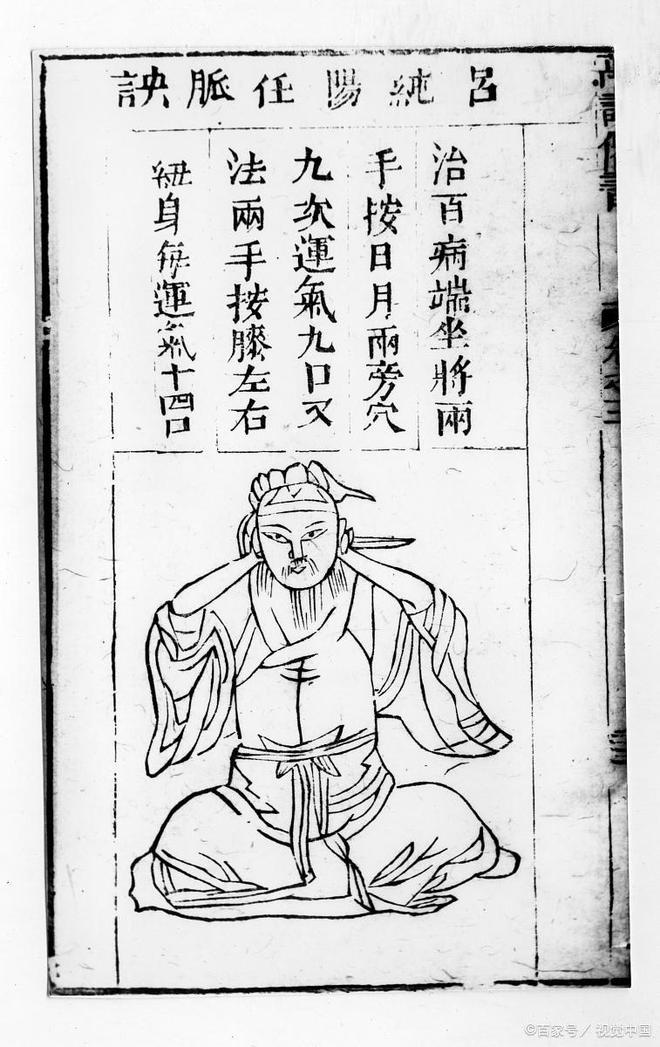 呂純陽任脈訣
治百病端坐將兩
手按日月兩旁穴
九次運氣九口又
法兩手按膝左右
紐身每運氣十四口
©百家号／视觉中国